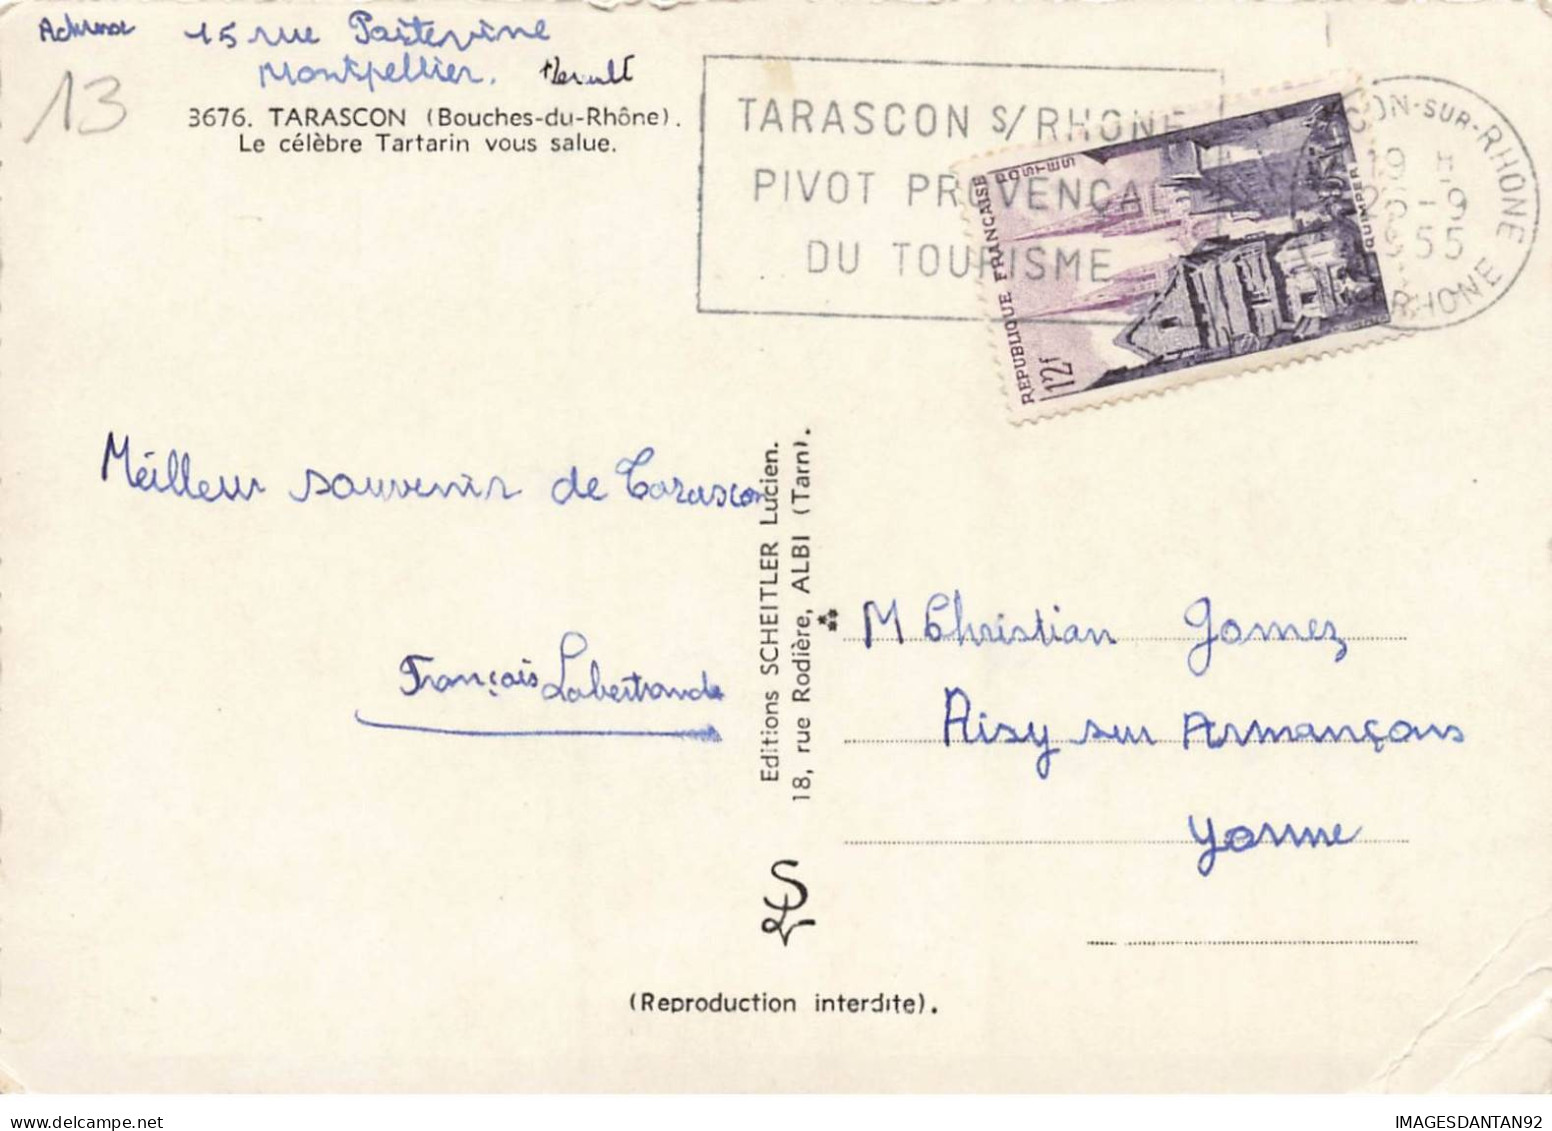 Adresse 15 rue Pasteur
Montpellier. Herault
13
3676. TARASCON (Bouches-du-Rhône).
Le célèbre Tartarin vous salue.
TARASCON S/ RHONE
PIVOT PROVENÇAL
DU TOURISME
SCON-SUR-RHONE
19 H
26-9
1955
RHONE
REPUBLIQUE FRANÇAISE
POSTES
12f
QUIMPER
Méilleur souvenir de Tarascon
François Labertrande
Editions SCHEITLER Lucien.
18, rue Rodière, ALBI (Tarn).
M Christian Gomez
Aisy sur Armançons
Yonne
SL
(Reproduction interdite).
IMAGESDANTAN92